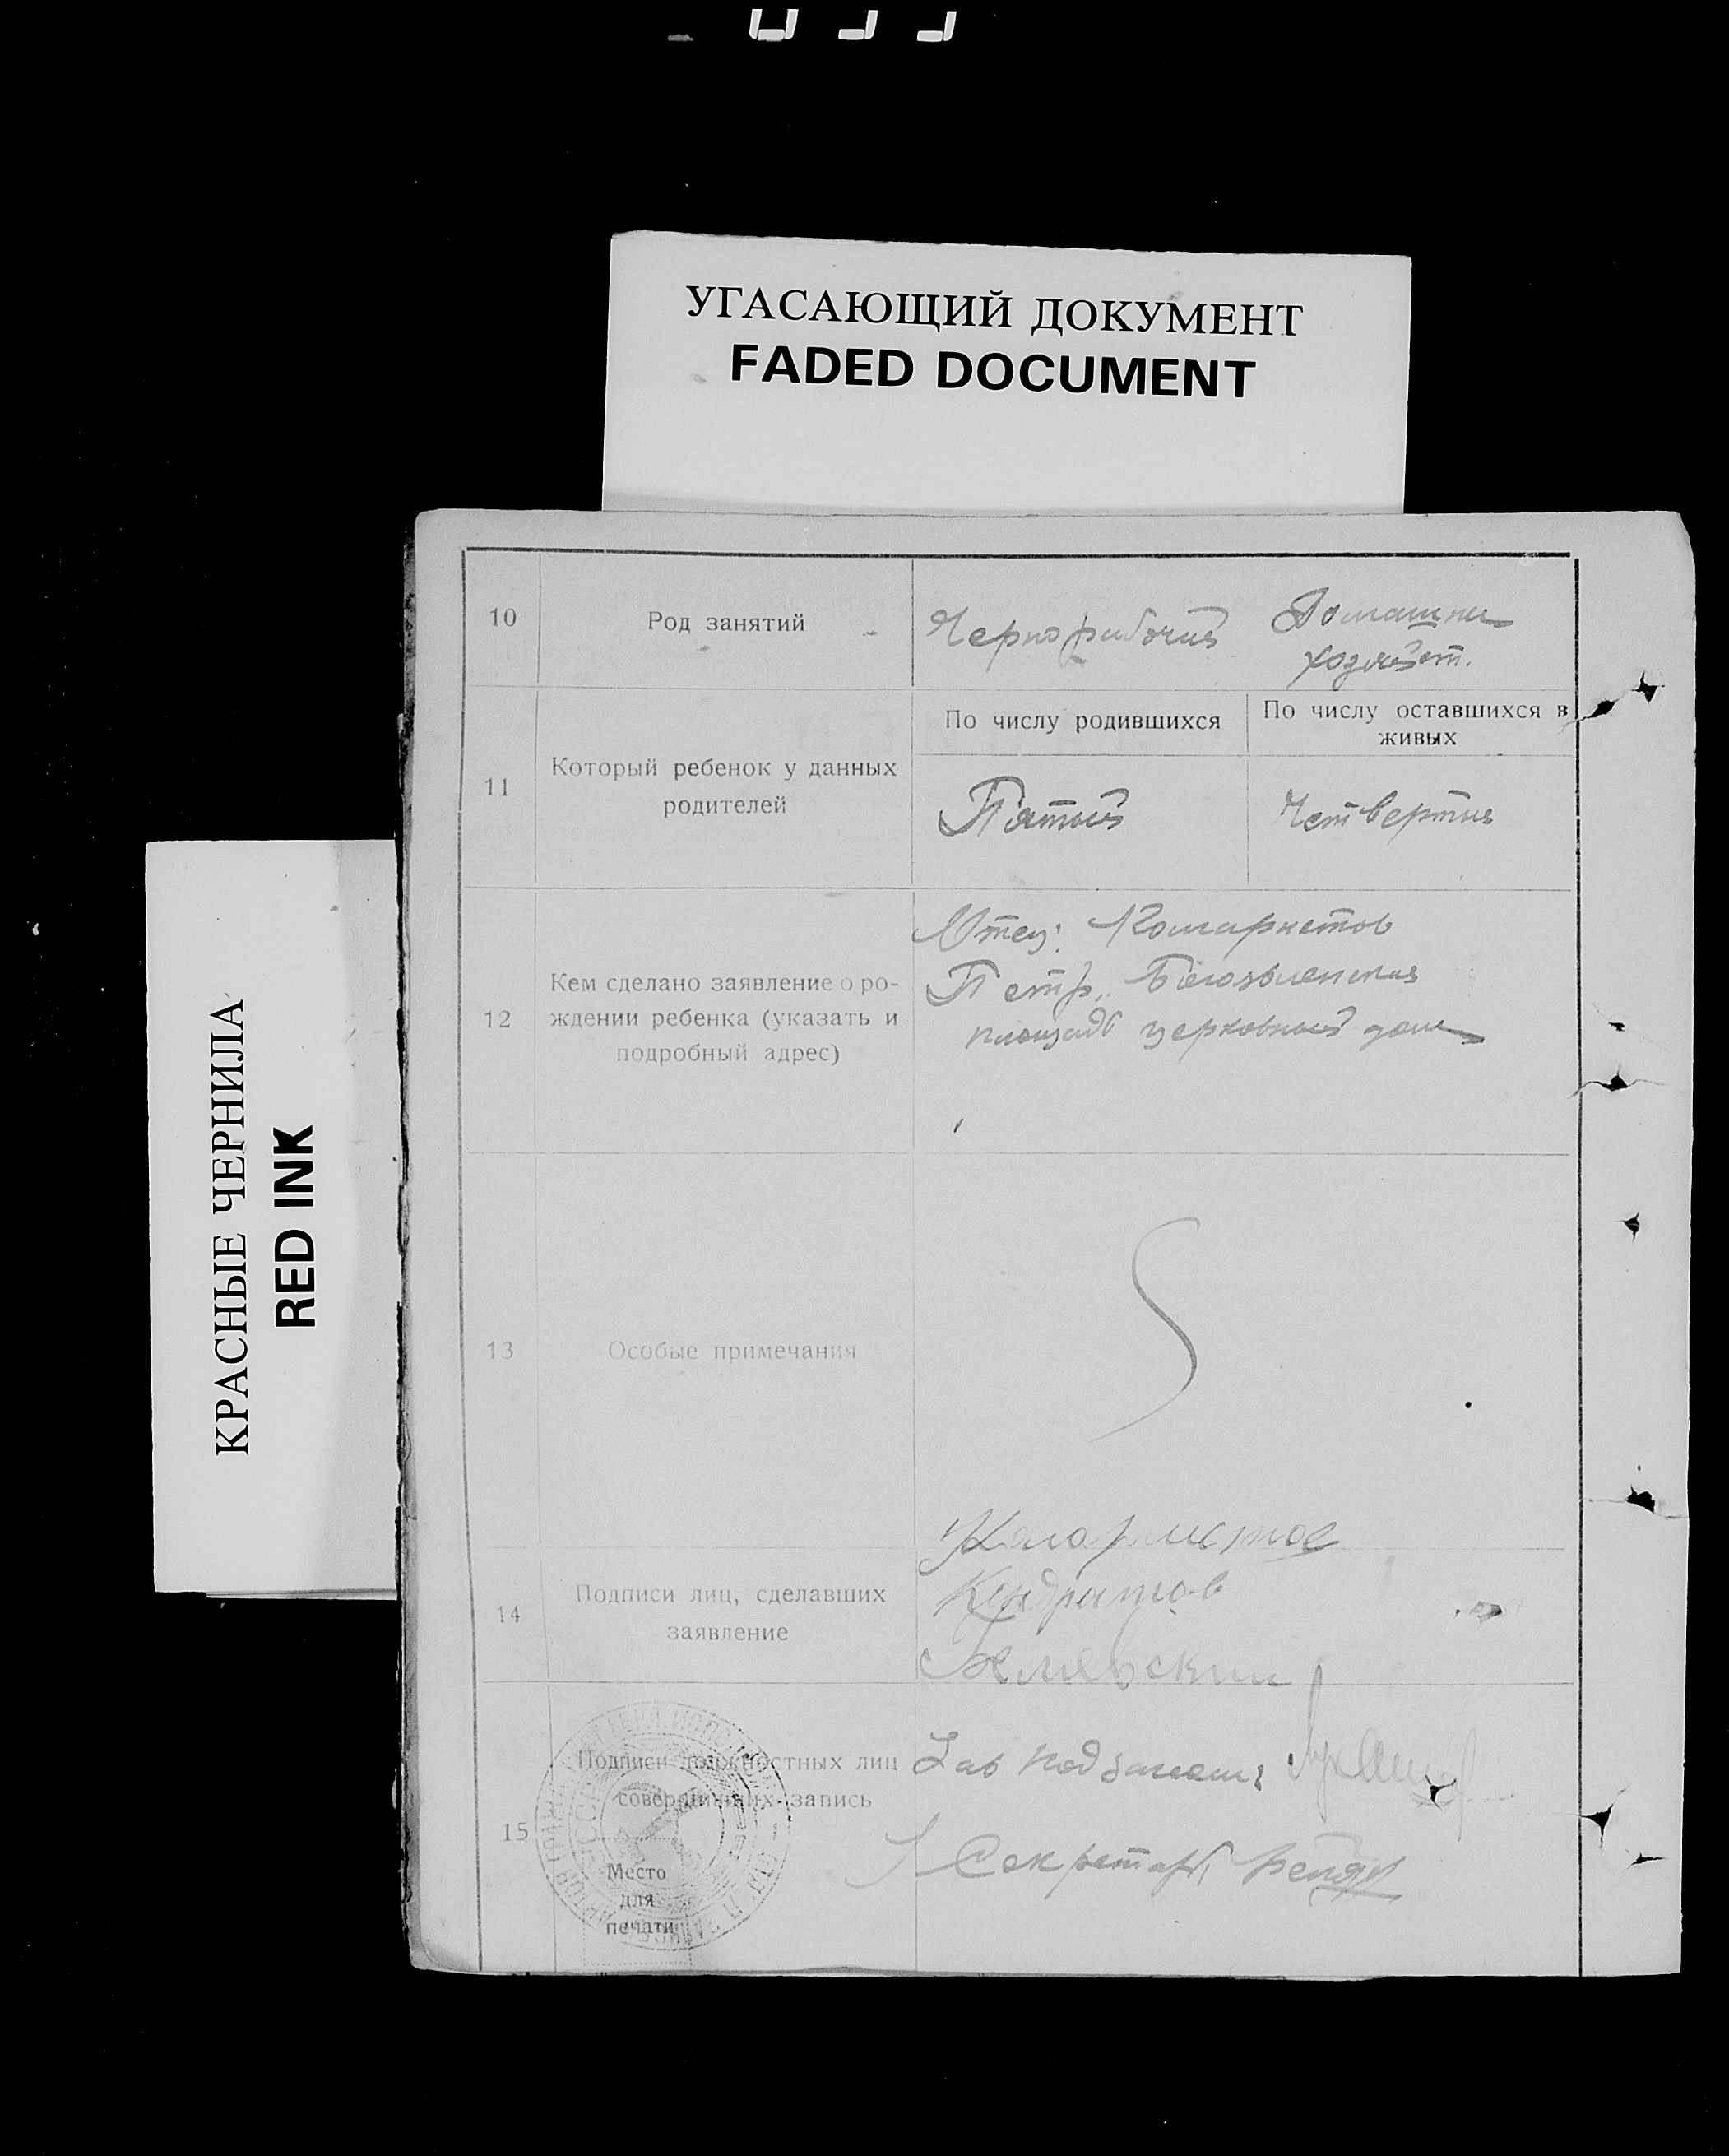 УГАСАЮЩИЙ ДОКУМЕНТ
FADED DOCUMENT
КРАСНЫЕ ЧЕРНИЛА
RED INK
10
Род занятий
Чернорабочий
Домашни
хозяйст.
11
Который ребенок у данных
родителей
По числу родившихся
Пятый
По числу оставшихся в
живых
Четвертый
12
Кем сделано заявление о ро-
ждении ребенка (указать и
подробный адрес)
Отец:
Петр. Богоявленская
площадь церковный дом
13
Особые примечания
14
Подписи лиц, сделавших
заявление
Кондратов
15
Подписи должностных лиц
совершивших запись
Место
для
печати
Зав
Секретарь